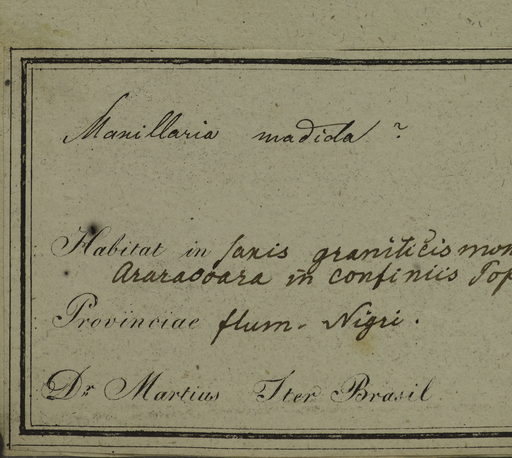 Maxillaria madida ?
Habitat in saxis graniticis mon
Araracoara in confiniis Pop
Provinciae flum. Nigri.
Dr Martius Iter Brasil